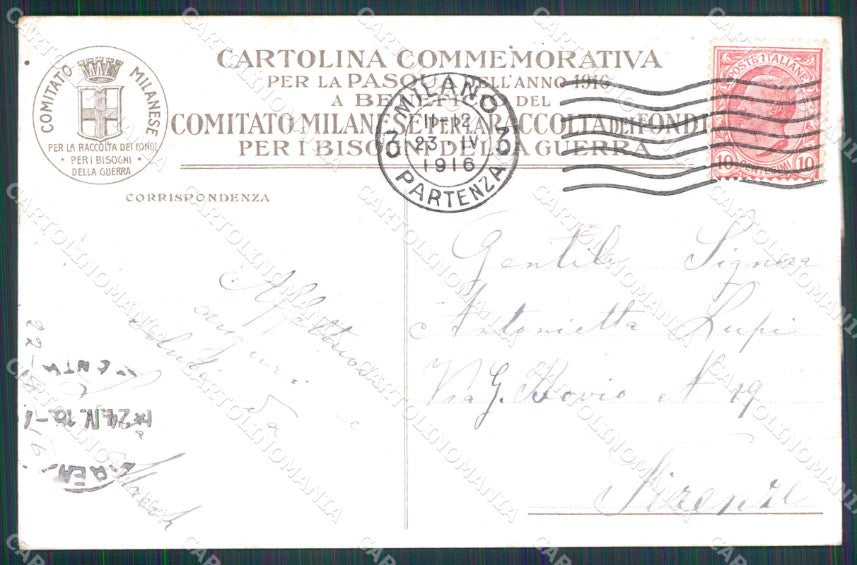 CARTOLINA COMMEMORATIVA
PER LA PASQUA DELL'ANNO 1916
A BENEFICIO DEL
COMITATO MILANESE PER LA RACCOLTA DEI FONDI
PER I BISOGNI DELLA GUERRA
COMITATO MILANESE
PER LA RACCOLTA DEI FONDI
• PER I BISOGNI •
DELLA GUERRA
MILANO
11-12
3 23 IV 3
1916
PARTENZA
POSTE ITALIANE
10 CENTESIMI 10
CORRISPONDENZA
Affettuosi
auguri e
saluti da
Gentile Signora
Antonietta Lupi
Via G. Bovio N 19
Firenze
24.IV.16
CARTOLINOMANIA